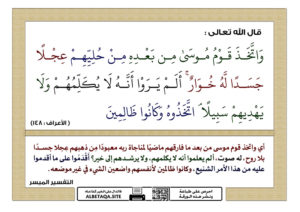 قال الله تعالى :
وَاتَّخَذَ قَوْمُ مُوسَىٰ مِن بَعْدِهِ مِنْ حُلِيِّهِمْ عِجْلًا
جَسَدًا لَّهُ خُوَارٌ ۚ أَلَمْ يَرَوْا أَنَّهُ لَا يُكَلِّمُهُمْ وَلَا
يَهْدِيهِمْ سَبِيلًا ۘ اتَّخَذُوهُ وَكَانُوا ظَالِمِينَ
( الأعراف : ١٤٨ )
أي واتخذ قوم موسى من بعد ما فارقهم ماضيًا لمناجاة ربه معبودًا من ذهبهم عِجلا جسدًا
بلا روح، له صوت، ألم يعلموا أنه لا يكلمهم، ولا يرشدهم إلى خير؟ أَقْدَمُوا على ما أقدموا
عليه من هذا الأمر الشنيع، وكانوا ظالمين لأنفسهم واضعين الشيء في غير موضعه.
التفسير الميسر
احرص على طباعة
ونشر هذه البطاقة
ALBETAQA.SITE